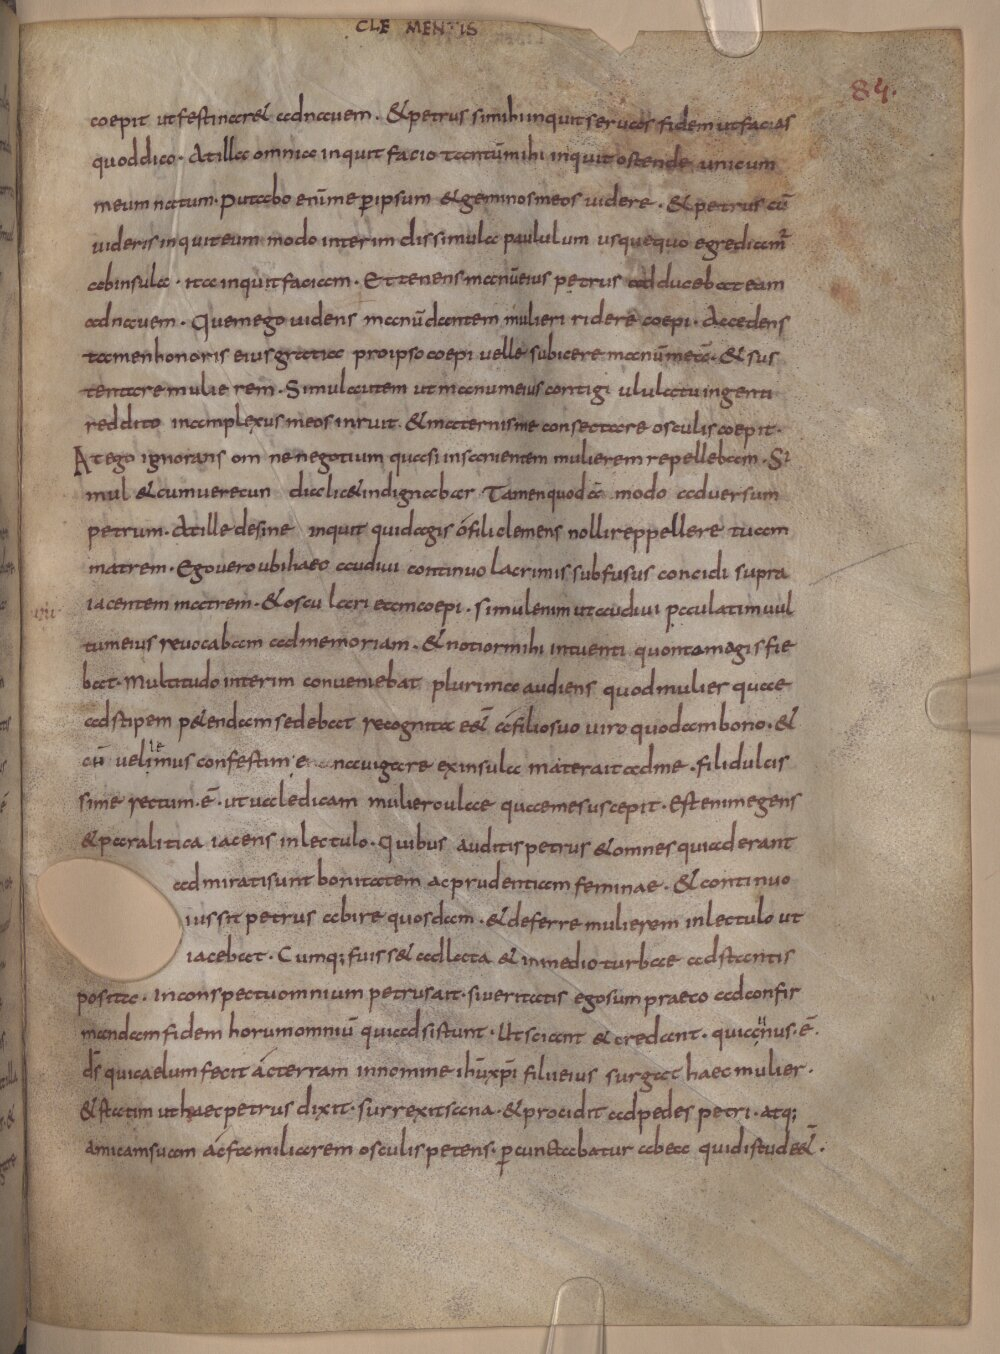 CLEMENTIS
84.
coepit ut festinaret ad navem. & petrus simihi inquit servas fidem utfacias
quoddico. Atilla omnia inquit facio tantūmihi inquit ostende unicum
meum natum. putabo enīme ꝑipsum & geminosmeos videre. & petrus cū
videris inquiteum modo interim dissimula paululum usquequo egrediam̄
abinsula. ita inquit faciam. Et tenens manūeius petrus adducebateam
adnavem. Quemego videns manūdantem mulieri ridere coepi. Accedens
tamenhonoris eiusgratia proipsocoepi velle subicere manūmeā. & sus
tentare mulierem. Simulautem ut manumeius contigi ululatu ingenti
reddito inamplexus meos inruit. & maternisme consectare osculis coepit.
At ego ignorans omne negotium quasi insanientem mulierem repellebam. Si
mul & cumverecundia lic& indignabar Tamenquodā modo adversum
petrum. Atille desine inquit quidagis ófili clemens nolli reppellere tuam
matrem. Egoverо ubihaec audivi continuo lacrimis subfusus concidi supra
iacentem matrem. & osculari eamcoepi. simulenim utaudivi paulatim vul
tumeius revocabam admemoriam. & notiormihi intuenti quontomagis fie
vii
bat. Multitudo interim conveniebat plurima audiens quodmulier quae
adstipem petendam sedebat recognita eēt afiliosuo viro quodambono. &
cū vellemus confestim e navigare exinsula materait adme. filidulcis
sime rectum.ē. ut valedicam mulieroulae quaemesuscepit. Est enimegens
& paralitica iacens inlectulo. Quibus auditis petrus & omnes quiaderant
admiratisunt bonitatem acprudentiam feminae. & continuo
iussit petrus abire quosdam. & deferre mulierem inlectulo ut
iacebat. Cumq; fuiss& adlata & inmedioturbae adstantis
posita. inconspectuomnium petrusait. siveritatis egosum praeco adconfir
mandamfidem horumomniū quiadsistunt. Ut sciant & credant. quia unus.ē.
dš quicaelumfecit acterram innomine ihūxp̄i filiieius surgat haec mulier.
& statim uthaec petrus dixit. surrexitsana. & procidit adpedes petri. atq;
amicamsuam acfamiliarem osculis petens. ꝑcunctabatur abea quidistudeēt.